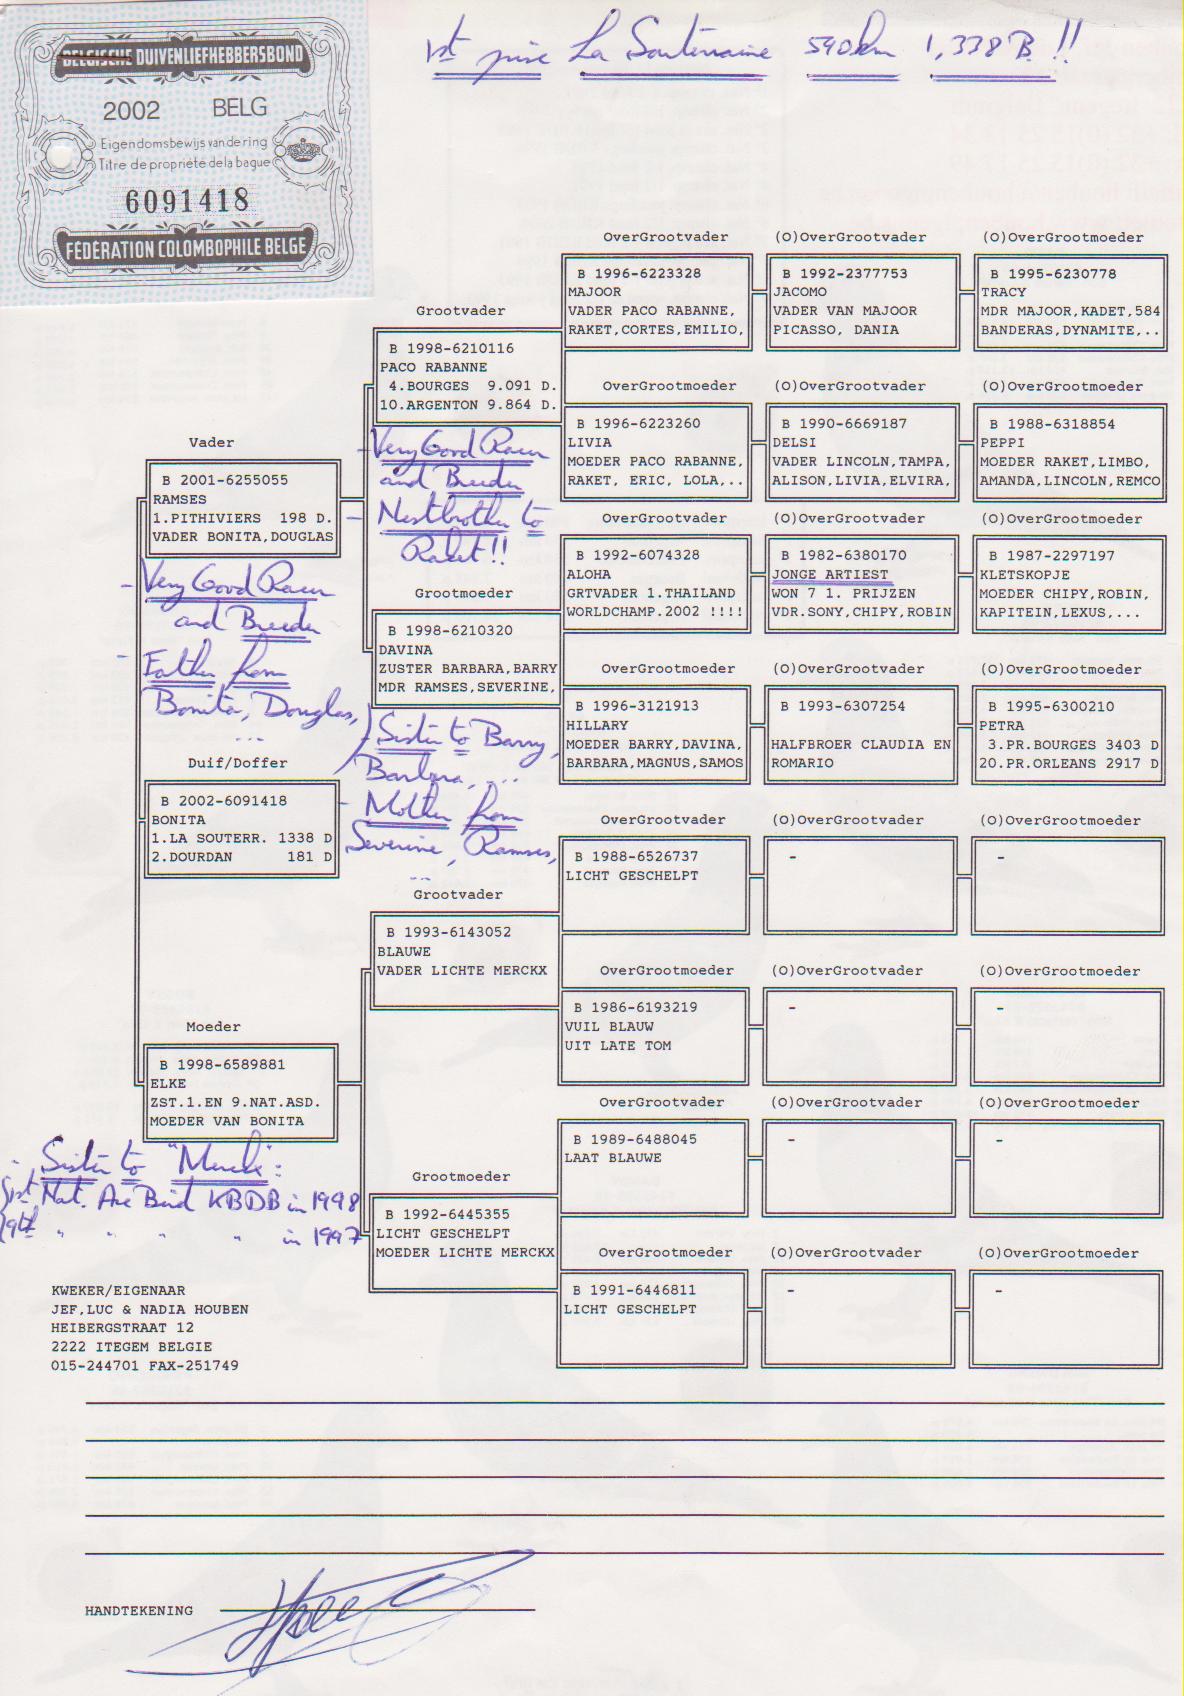 BELGISCHE DUIVENLIEFHEBBERSBOND
2002 BELG
Eigendomsbewijs van de ring
Titre de propriété de la bague
6091418
FÉDÉRATION COLOMBOPHILE BELGE
1st prize La Souterraine 540km 1,338 B !!
OverGrootvader (O)OverGrootvader (O)OverGrootmoeder
B 1996-6223328
MAJOOR
VADER PACO RABANNE,
RAKET,CORTES,EMILIO,
B 1992-2377753
JACOMO
VADER VAN MAJOOR
PICASSO, DANIA
B 1995-6230778
TRACY
MDR MAJOOR,KADET,584
BANDERAS,DYNAMITE,..
Grootvader
B 1998-6210116
PACO RABANNE
4.BOURGES 9.091 D.
10.ARGENTON 9.864 D.
- Very Good Racer
and Breeder
- Nestbrother to
Raket!!
OverGrootmoeder (O)OverGrootvader (O)OverGrootmoeder
B 1996-6223260
LIVIA
MOEDER PACO RABANNE,
RAKET, ERIC, LOLA,..
B 1990-6669187
DELSI
VADER LINCOLN,TAMPA,
ALISON,LIVIA,ELVIRA,
B 1988-6318854
PEPPI
MOEDER RAKET,LIMBO,
AMANDA,LINCOLN,REMCO
Vader
B 2001-6255055
RAMSES
1.PITHIVIERS 198 D.
VADER BONITA,DOUGLAS
- Very Good Racer
and Breeder
- Father from
Bonita, Douglas,
...
OverGrootvader (O)OverGrootvader (O)OverGrootmoeder
B 1992-6074328
ALOHA
GRTVADER 1.THAILAND
WORLDCHAMP.2002 !!!!
B 1982-6380170
JONGE ARTIEST
WON 7 1. PRIJZEN
VDR.SONY,CHIPY,ROBIN
B 1987-2297197
KLETSKOPJE
MOEDER CHIPY,ROBIN,
KAPITEIN,LEXUS,...
Grootmoeder
B 1998-6210320
DAVINA
ZUSTER BARBARA,BARRY
MDR RAMSES,SEVERINE,
- Sister to Barry,
Barbara, ...
- Mother from
Severine, Ramses,
...
OverGrootmoeder (O)OverGrootvader (O)OverGrootmoeder
B 1996-3121913
HILLARY
MOEDER BARRY,DAVINA,
BARBARA,MAGNUS,SAMOS
B 1993-6307254
HALFBROER CLAUDIA EN
ROMARIO
B 1995-6300210
PETRA
3.PR.BOURGES 3403 D
20.PR.ORLEANS 2917 D
Duif/Doffer
B 2002-6091418
BONITA
1.LA SOUTERR. 1338 D
2.DOURDAN 181 D
OverGrootvader (O)OverGrootvader (O)OverGrootmoeder
B 1988-6526737
LICHT GESCHELPT
-
-
Grootvader
B 1993-6143052
BLAUWE
VADER LICHTE MERCKX
OverGrootmoeder (O)OverGrootvader (O)OverGrootmoeder
B 1986-6193219
VUIL BLAUW
UIT LATE TOM
-
-
Moeder
B 1998-6589881
ELKE
ZST.1.EN 9.NAT.ASD.
MOEDER VAN BONITA
- Sister to "Merckx":
1st Nat. Ace Bird KBDB in 1998
9th " " " " in 1997
OverGrootvader (O)OverGrootvader (O)OverGrootmoeder
B 1989-6488045
LAAT BLAUWE
-
-
Grootmoeder
B 1992-6445355
LICHT GESCHELPT
MOEDER LICHTE MERCKX
OverGrootmoeder (O)OverGrootvader (O)OverGrootmoeder
B 1991-6446811
LICHT GESCHELPT
-
-
KWEKER/EIGENAAR
JEF,LUC & NADIA HOUBEN
HEIBERGSTRAAT 12
2222 ITEGEM BELGIE
015-244701 FAX-251749
HANDTEKENING